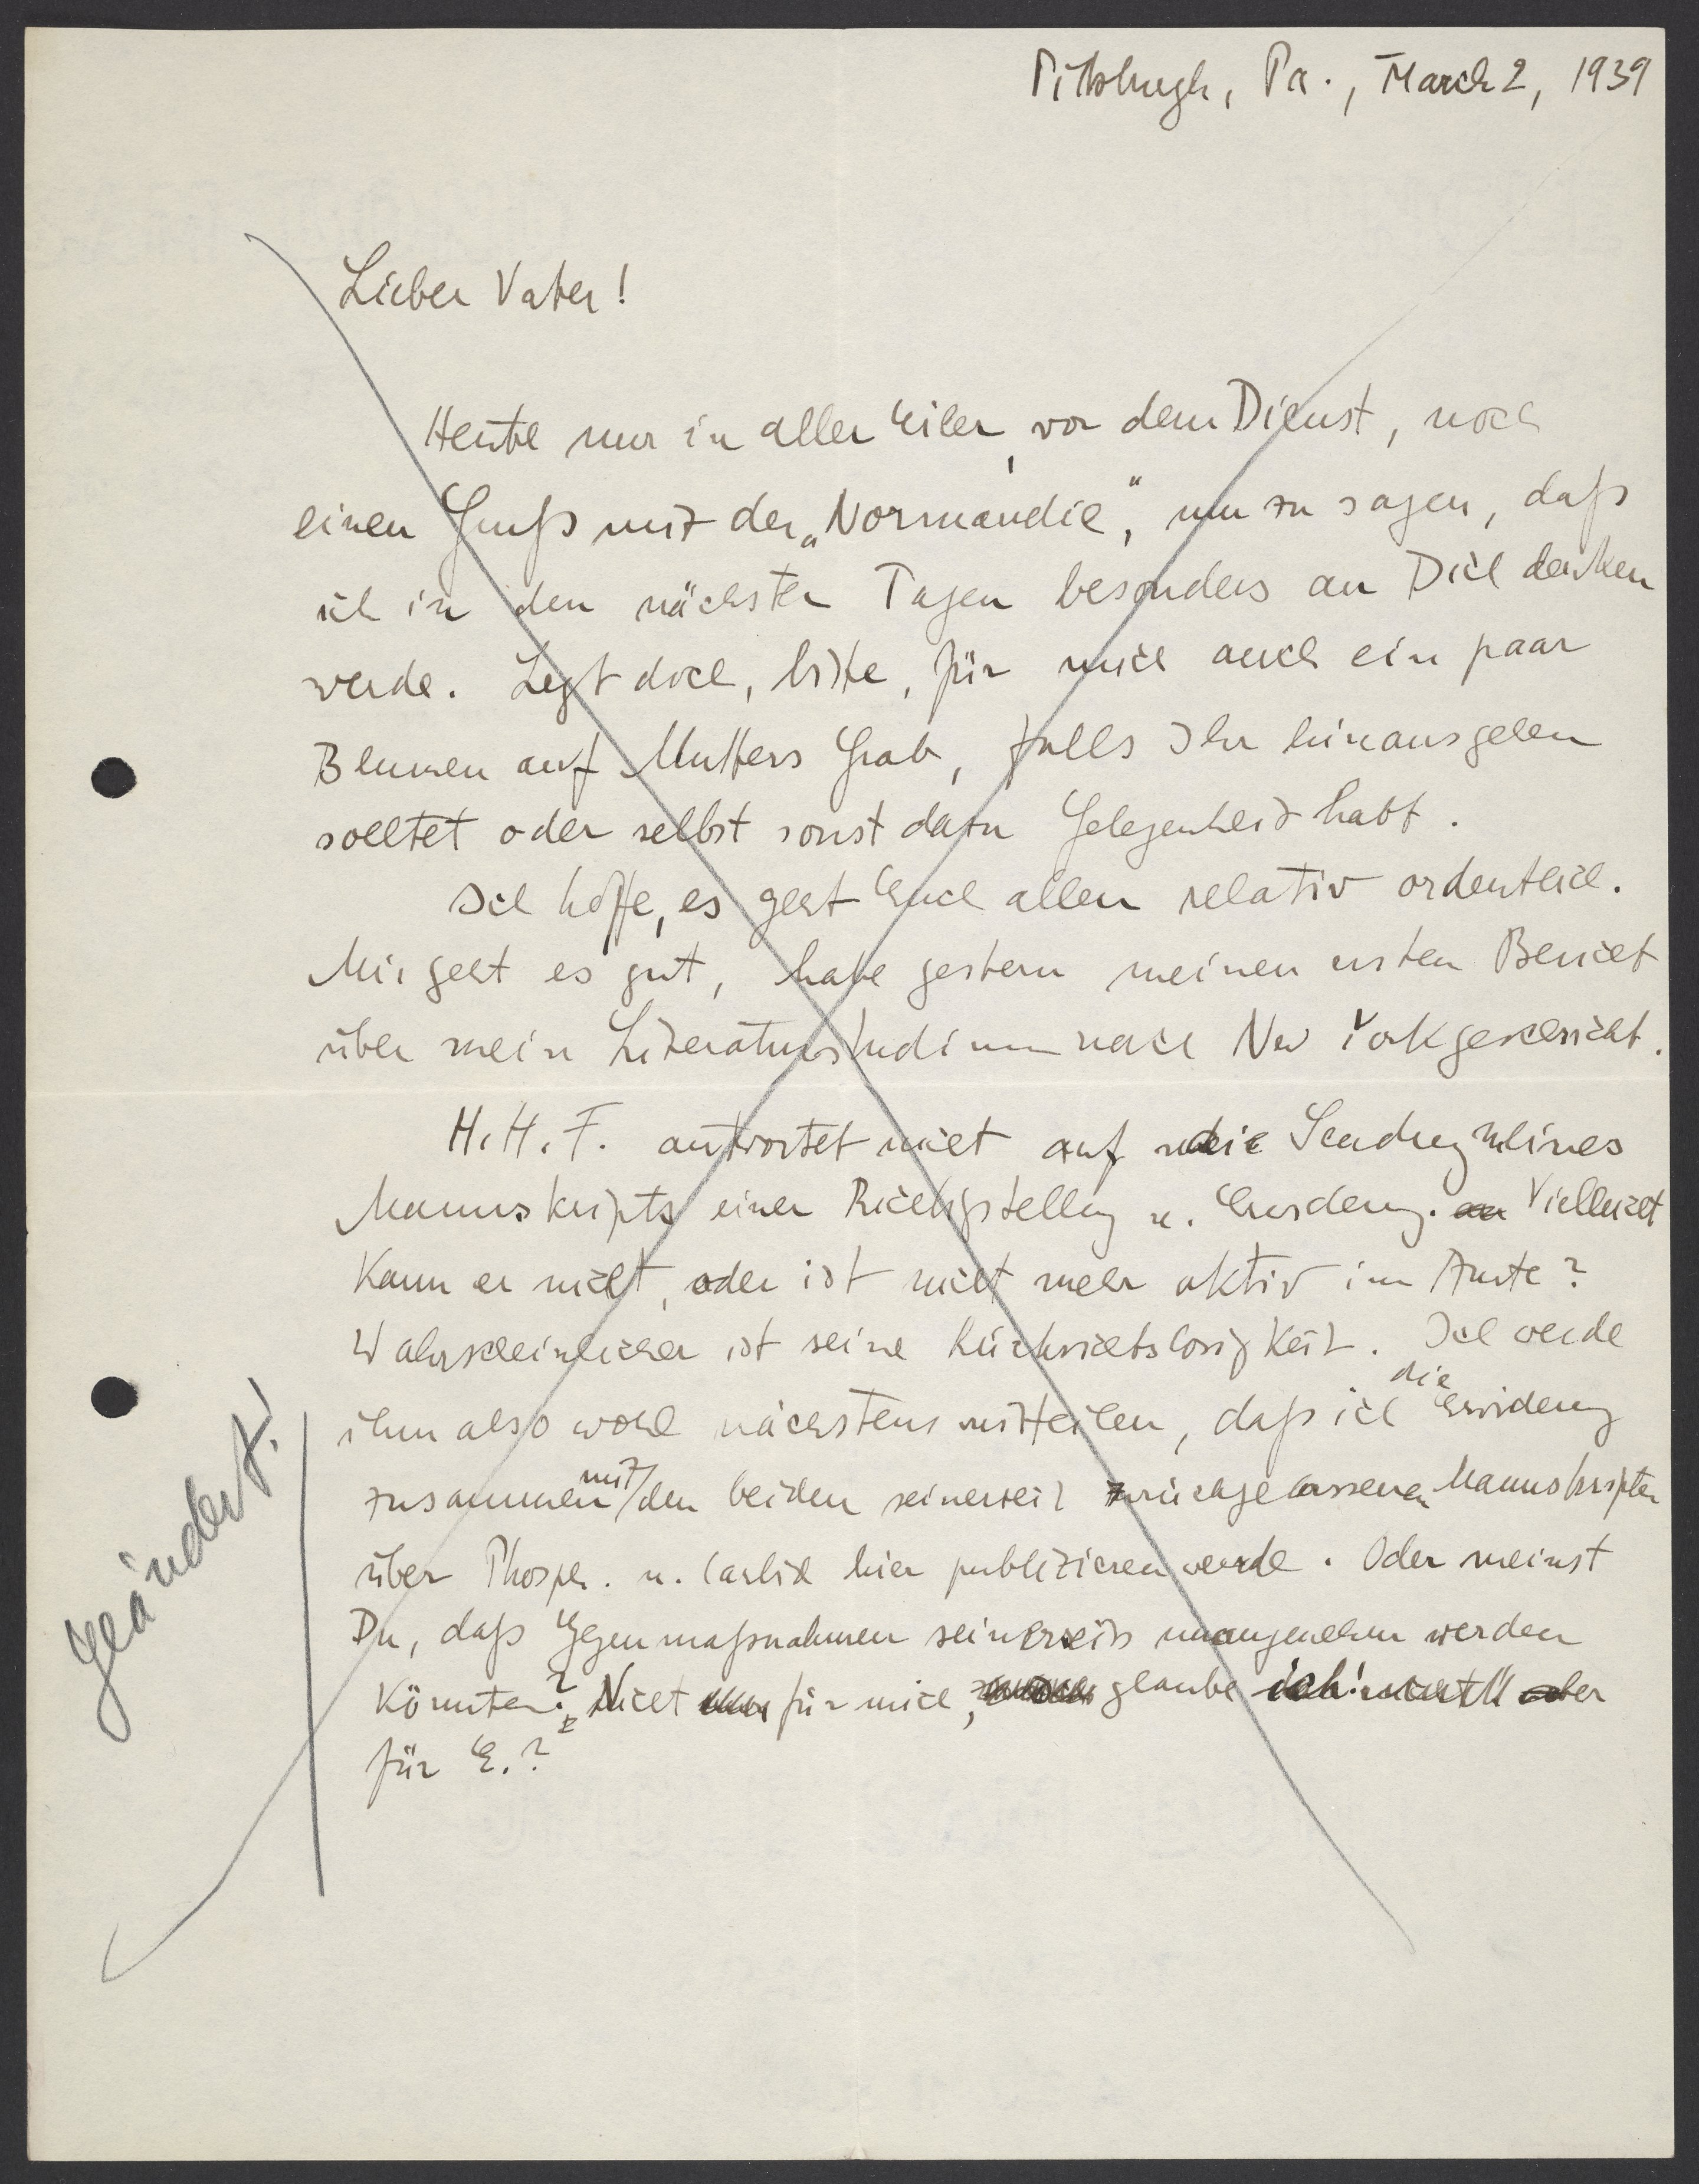 Pittsburgh, Pa., March 2, 1939
Lieber Vater!
Heute nur in aller Eile, vor dem Dienst, noch
einen Gruß mit der „Normandie“, um zu sagen, daß
ich in den nächsten Tagen besonders an Dich denken
werde. Legt doch, bitte, für mich auch ein paar
Blumen auf Mutters Grab, falls Ihr hinausgehen
solltet oder selbst sonst dazu Gelegenheit habt.
Ich hoffe, es geht Euch allen relativ ordentlich.
Mir geht es gut, habe gestern meinen ersten Bericht
über mein Literaturstudium nach New York geschickt.
H. H. F. antwortet nicht auf die Sendung meines
Manuskripts einer Richtigstellung u. Erwiderung. Vielleicht
kann er nicht, oder ist nicht mehr aktiv im Amte?
Wahrscheinlicher ist seine Rücksichtslosigkeit. Ich werde
ihm also wohl nächstens mitteilen, daß ich die Erwiderung
zusammen mit den beiden seinerzeit zurückgelassenen Manuskripten
über Phosph. u. Carbid hier publizieren werde. Oder meinst
Du, daß Gegenmaßnahmen seinerseits unangenehm werden
könnten? Nicht für mich, glaube ich! aber
für E.?
Geändert!